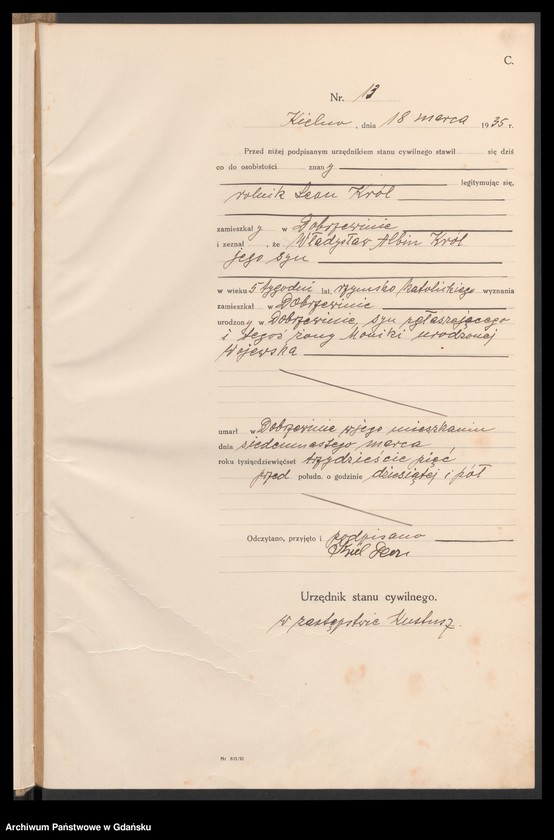 C.
Nr. 13
Kielno, dnia 18 marca 1935 r.
Przed niżej podpisanym urzędnikiem stanu cywilnego stawił się dziś
co do osobistości znany
legitymując się,
rolnik Leon Król
zamieszkały w Dobrzewinie
i zeznał, że Władysław Albin Król
jego syn
w wieku 5 tygodni lat, rzymsko katolickiego wyznania
zamieszkał w Dobrzewinie
urodzony w Dobrzewinie, syn zgłaszającego
i tegoż żony Moniki urodzonej
Wojewska
umarł w Dobrzewinie w jego mieszkaniu
dnia siedemnastego marca
roku tysiącdziewięćset trzydzieście pięć
przed połudn. o godzinie dziesiątej i pół
Odczytano, przyjęto i podpisano
Król Leon
Urzędnik stanu cywilnego.
w zastępstwie
Archiwum Państwowe w Gdańsku